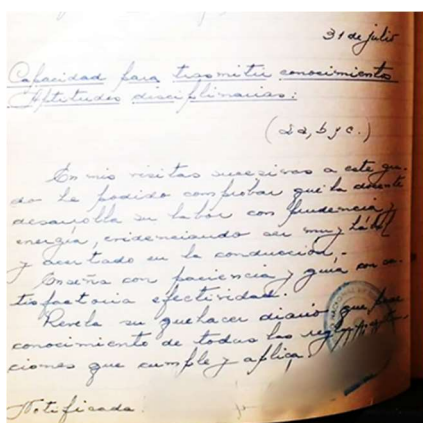 31 de julio
Capacidad para trasmitir conocimiento
Aptitudes disciplinarias:
(2a, b y c.)
En mis visitas sucesivas a este gra-
do he podido comprobar que la docente
desarrolla su labor con prudencia y
energía, evidenciando ser muy hábil
y acertado en la conducción,-
Enseña con paciencia y guía con sa-
tisfactoria efectividad.
Revela su quehacer diario, que posee
conocimiento de todas las reglamenta-
ciones que cumple y aplica.
Notificada